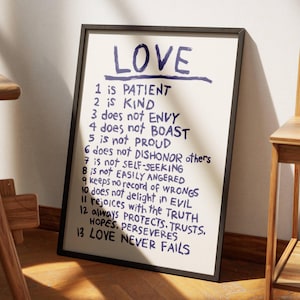 LOVE
1 is PATIENT
2 is KIND
3 does not ENVY
4 does not BOAST
5 is not PROUD
6 does not DISHONOR others
7 is not SELF-SEEKING
8 is not EASILY ANGERED
9 keeps no record of WRONGS
10 does not delight in EVIL
11 rejoices with the TRUTH
12 always PROTECTS, TRUSTS,
HOPES, PERSEVERES
13 LOVE NEVER FAILS